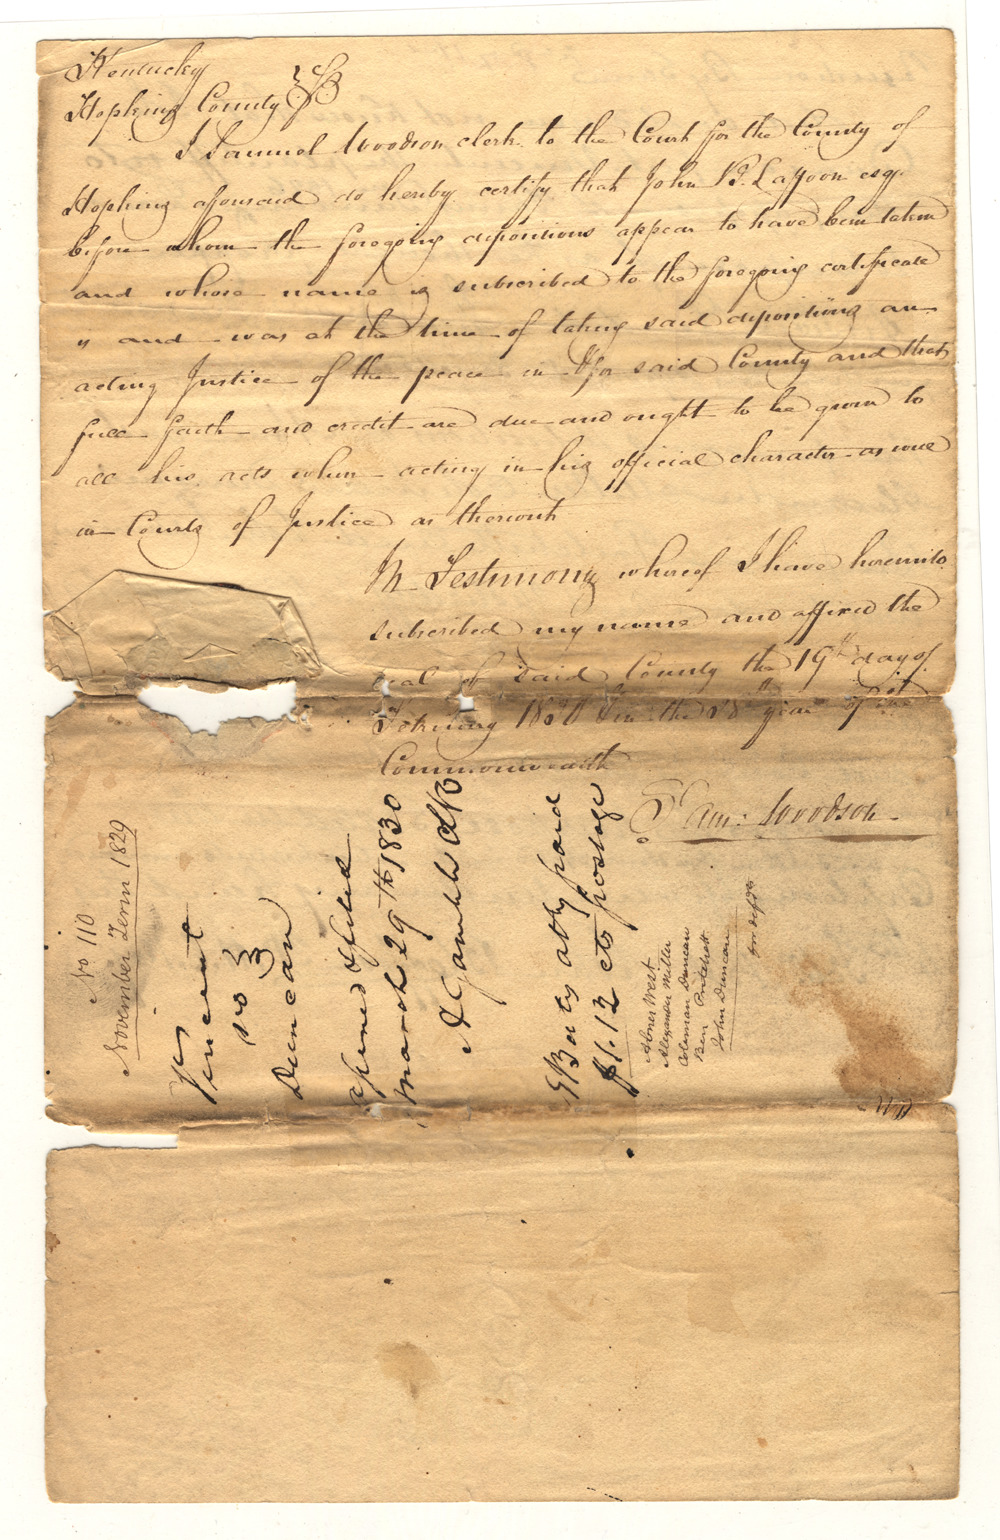 Kentucky
Hopkins County
I Samuel Woodson clerk to the Court for the County of
Hopkins aforesaid do hereby certify that John B. Laffoon esqr.
before whom the foregoing depositions appear to have been taken
and whose name is subscribed to the foregoing certificate
is and was at the time of taking said depositions an
acting Justice of the peace in & for said County and that
full faith and credit are due and ought to be given to
all his acts when acting in his official character as well
in Courts of Justice as therewith
In Testimony whereof I have hereunto
subscribed my name and affixed the
seal of said County the 19th day of
February 1830 & in the 38th year of
Commonwealth
Sam: Woodson
No 110
November Term 1829
Vincent
vs
Duncan
opened & filed
march 29th 1830
A Gamble clk
Batys atty paid
$1.12 cts postage
Abner West
Alexander Miller
Coleman Duncan
Ben Pritchett
John Duncan